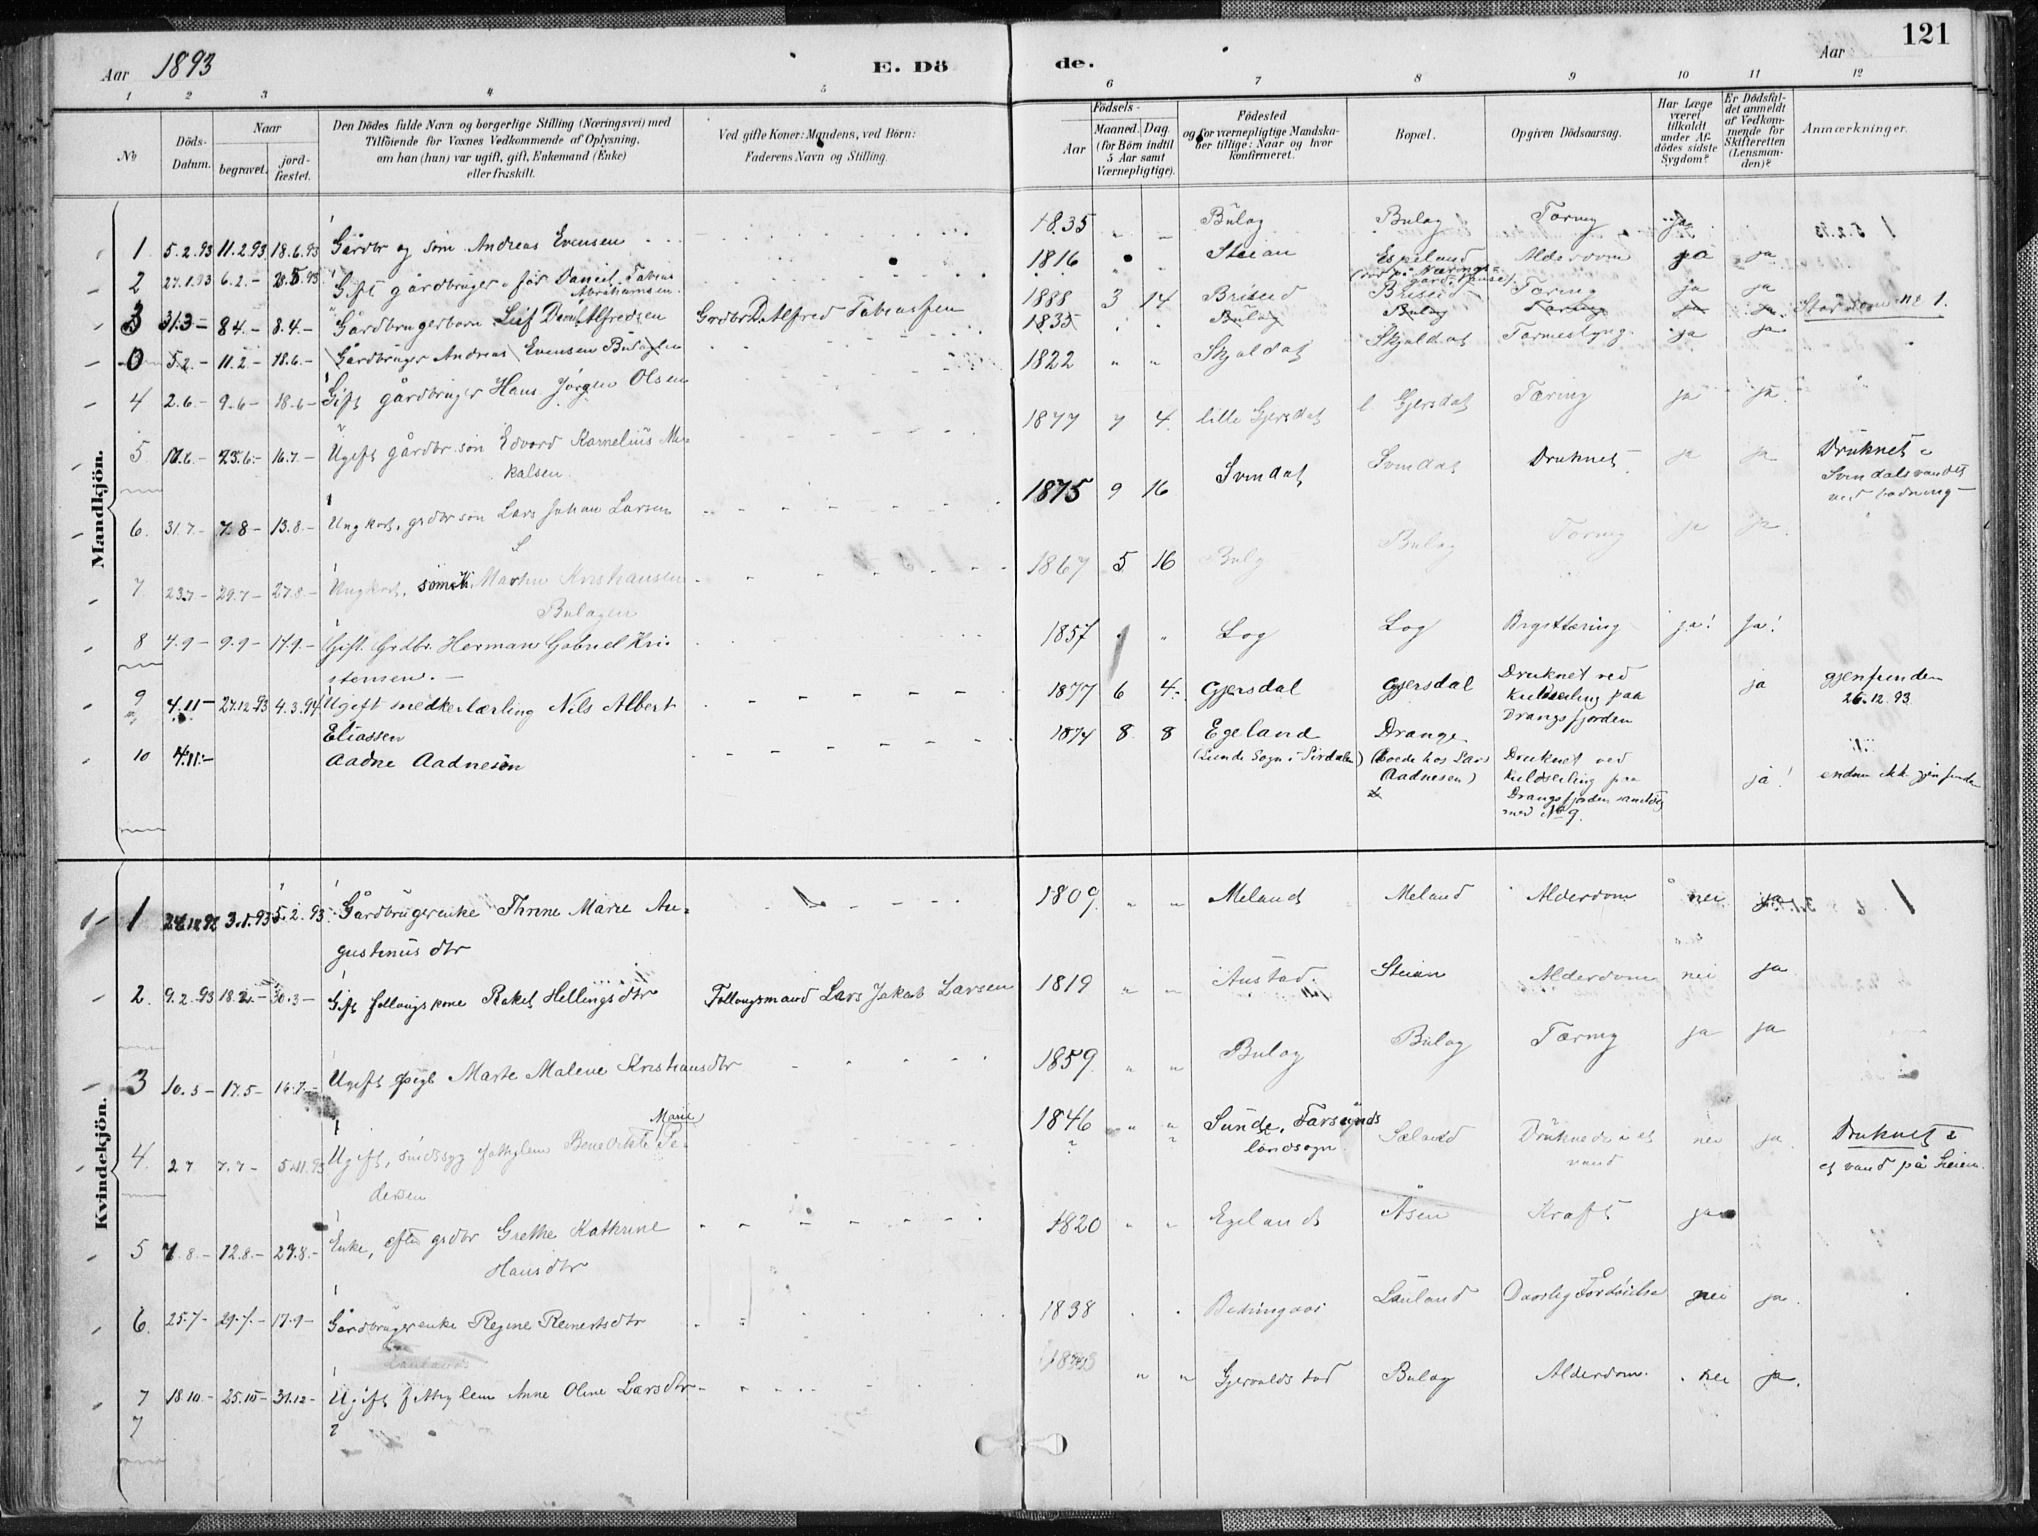 121
Aar 1893
E. Dö de.
Aar
1 2 3 4 5 6 7 8 9 10 11 12
No
Döds-Datum.
Naar
begravet.
jord-fæstet.
Den Dödes fulde Navn og borgerlige Stilling (Næringsvei) med
Tilföiende for Voxnes Vedkommende af Oplysning,
om han (hun) var ugift, gift, Enkemand (Enke)
eller fraskilt.
Ved gifte Koner: Mandens, ved Börn:
Faderens Navn og Stilling.
Födsels-
Aar
Maaned. Dag.
(for Börn indtil
5 Aar samt
Værnepligtige).
Födested
og for værnepligtige Mandska-
ber tillige: Naar og hvor
konfirmeret.
Bopæl.
Opgiven Dödsaarsag.
Har Læge
været
tilkaldt
under Af-
dödes sidste
Sygdom?
Er Dödsfal-
det anmeldt
af Vedkom-
mende for
Skifteretten
(Lensman-
den)?
Anmærkninger.
Mandkjön.
1 5.2.93 11.2.93 18.6.93 Gårdbr og søm Andreas Evensen 1835 Bulag Bulag Tæring ja
2 27.1.93 6.2.- 28.5.93 Gift gårdbruger, før Daniel Tobias
Abrahamsen 1816 Steian Espeland Alderdom ja ja
3 31.3- 8.4.- 8.4.- Gårdbrugerbarn Leif Daniel Alfredsen Grdbr D. Alfred Tobiassen 1888 3 14 Briseid Briseid Tæring ja ja
0 5.2.- 11.2- 18.6.- Gårdbruger Andreas Evensen Bulagen 1835 Bulag Bulag Tæring ja ja Står som no 1.
4 2.6.- 9.6- 18.6- Gift gårdbruger Hans Jørgen Olsen 1822 Skjoldal Skjoldal Tarmeslyng ja ja
5 17.6.- 23.6.- 16.7.- Ugift gårdbr. søn Edvard Kornelius Mi-
kalsen 1877 7 4 lille Gjersdal l. Gjersdal Tæring ja ja
6. 31.7- 7.8- 13.8.- Ungkarl, grdbr søn Lars Johan Larsen 1875 9 16 Svindal Svindal Druknet ja ja Druknet i
Svindalsvandet
ved badning -
7 23.7- 29.7- 27.8.- Ungkarl, sømd. Martin Kristiansen
Bulagen 1867 5 16 Bulg Bulag Tæring ja ja
8 4.9- 9.9- 17.9.- Gift Grdbr. Herman Gabriel Kri-
stensen. - 1857 Log Log Brysttæring ja! Ja!
9 4.11- 27.12.93 4.3.94 Ugift snedkerlærling Nils Albert
Eliassen 1877 6 4. Gjersdal Gjersdal Druknet ved
Kuldseiling paa
Drangsfjorden ja gjenfunden
26.12.93
10 4.11.- Aadne Aadnesen 1874 8 8 Egeland
(Lunde Sogn i Sirdalen) Drange
(boede hos Lars
Aadnesen) Druknet ved
Kuldseiling paa
Drangsfjorden samtidig
med No 9. ja! endnu ikk gjenfunden
Kvindekjön.
1 24.12.92 3.1.93 5.2.93 Gårdbrugerenke Thrine Marie Au-
gustinusdtr 1809 Meland Meland Alderdom nei ja 1
2. 9.2.93 18.2.- 30.3- Gift follaugskone Rakel Hellingsdtr Follaugsmand Lars Jakob Larsen 1819 Austad Steian Alderdom nei ja
3 10.5- 17.5- 16.7.- Ugift pige Marte Malene Kristiansdtr 1859 Bulag Bulag Tæring ja ja
4. 2.7 7.7- 5.11.93 Ugift, sindssyg fattiglem Benedikte Marie Pe-
dersen 1846 Sunde, Farsunds
landsogn Sæland Druknede i et
vand nei ja Druknet i
et vand på Steien.
5 7.8.- 12.8.- 27.8.- Enke, efter grdbr Grethe Kathrine
Hansdtr 1820 Egeland Åsen Kræft ja
6. 25.7- 29.7.- 17.9- Gårdbrugerenke Regine Reinertsdtr
Laulands 1838 Lauland Daarlig Fordöielse nei ja
7 18.10- 25.10- 31.12- Ugift fattiglem Anne Oline Larsdtr Gjervoldstad Bulag Alderdom. nei ja.
7